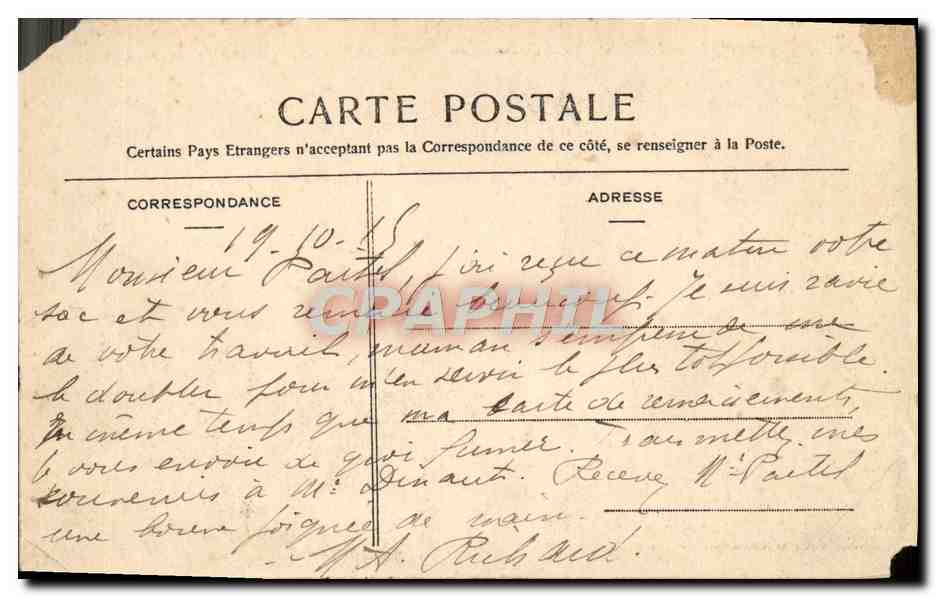 CARTE POSTALE
Certains Pays Etrangers n'acceptant pas la Correspondance de ce côté, se renseigner à la Poste.
CORRESPONDANCE
ADRESSE
19-10-15
Monsieur Paetel, j'ai reçu ce matin votre
sac et vous remercie beaucoup. Je suis ravie
de votre travail, maman s'empresse de me
le doubler pour m'en servir le plus tôt possible.
En même temps que ma carte de remerciements,
je vous envoie de quoi fumer. Transmettez mes
souvenirs à Mr Dinant. Recevez Mr Paetel
une bonne poignée de main.
M A. Richard.
CPAPHIL